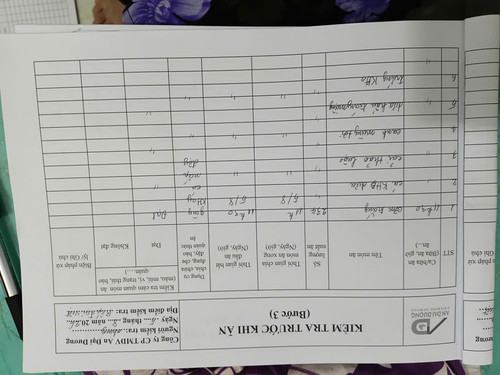 AN DẠI DƯƠNG
KIỂM TRA TRƯỚC KHI ĂN
(Bước 3)
Công ty CP TMDV An Đại Dương
Người kiểm tra:
Ngày 5 tháng 8 năm 20
Địa điểm kiểm tra:
STT
Ca/bữa ăn (Bữa, giờ ăn...)
Tên món ăn
Số lượng suất ăn
Thời gian chia món ăn xong (Ngày, giờ)
Thời gian bắt đầu ăn (Ngày, giờ)
Dụng cụ chia, chứa đựng, che đậy, bảo quản thức ăn
Kiểm tra cảm quan món ăn (màu, mùi, vị, trạng thái, bảo quản...)
Đạt
Không đạt
Biện pháp xử lý /Ghi chú
1 11h30 cơm trắng 234 11h 5/8 11h30 5/8 Đạt
khay có nắp đậy
2 " cá kho dưa " " " "
3 " cải thảo luộc " " " "
4 " canh mùng tơi " " " "
5 " " " " "
6 " trứng kho